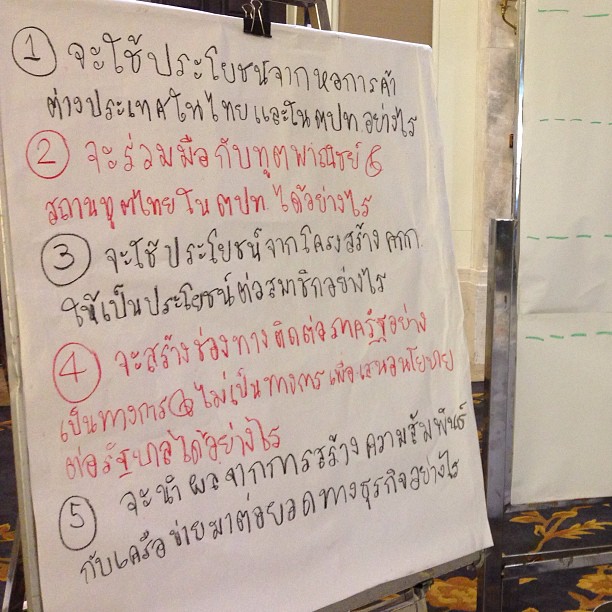 ① จะใช้ประโยชน์จากหอการค้า
ต่างประเทศในไทยและในตปท.อย่างไร
② จะร่วมมือกับทูตพาณิชย์ &
สถานทูตไทยในตปท.ได้อย่างไร
③ จะใช้ประโยชน์จากโครงสร้าง
ให้เป็นประโยชน์ต่อสมาชิกอย่างไร
④ จะสร้างช่องทางติดต่อภาครัฐอย่าง
เป็นทางการ & ไม่เป็นทางการเพื่อเสนอนโยบาย
ต่อรัฐบาลได้อย่างไร
⑤ จะนำผลจากการสร้างความสัมพันธ์
กับเครือข่ายมาต่อยอดทางธุรกิจอย่างไร